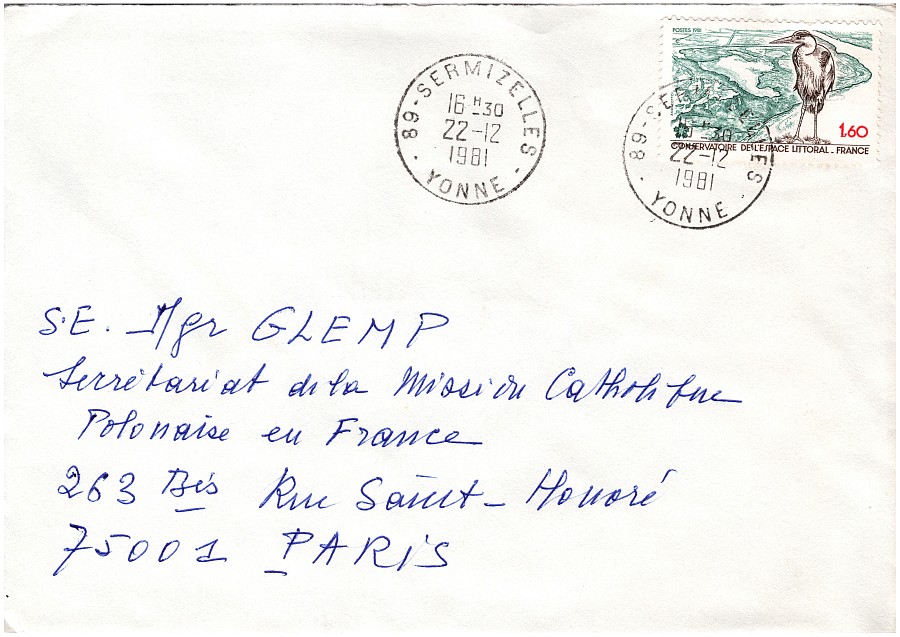 POSTES 1981
1,60
CONSERVATOIRE DE L'ESPACE LITTORAL - FRANCE
89 - SERMIZELLES
16 H 30
22-12
1981
YONNE
89 - SERMIZELLES
16 H 30
22-12
1981
YONNE
S.E. Mgr GLEMP
Serrétariat de la Mission Catholique
Polonaise en France
263 Bis Rue Saint-Honoré
75001 PARIS